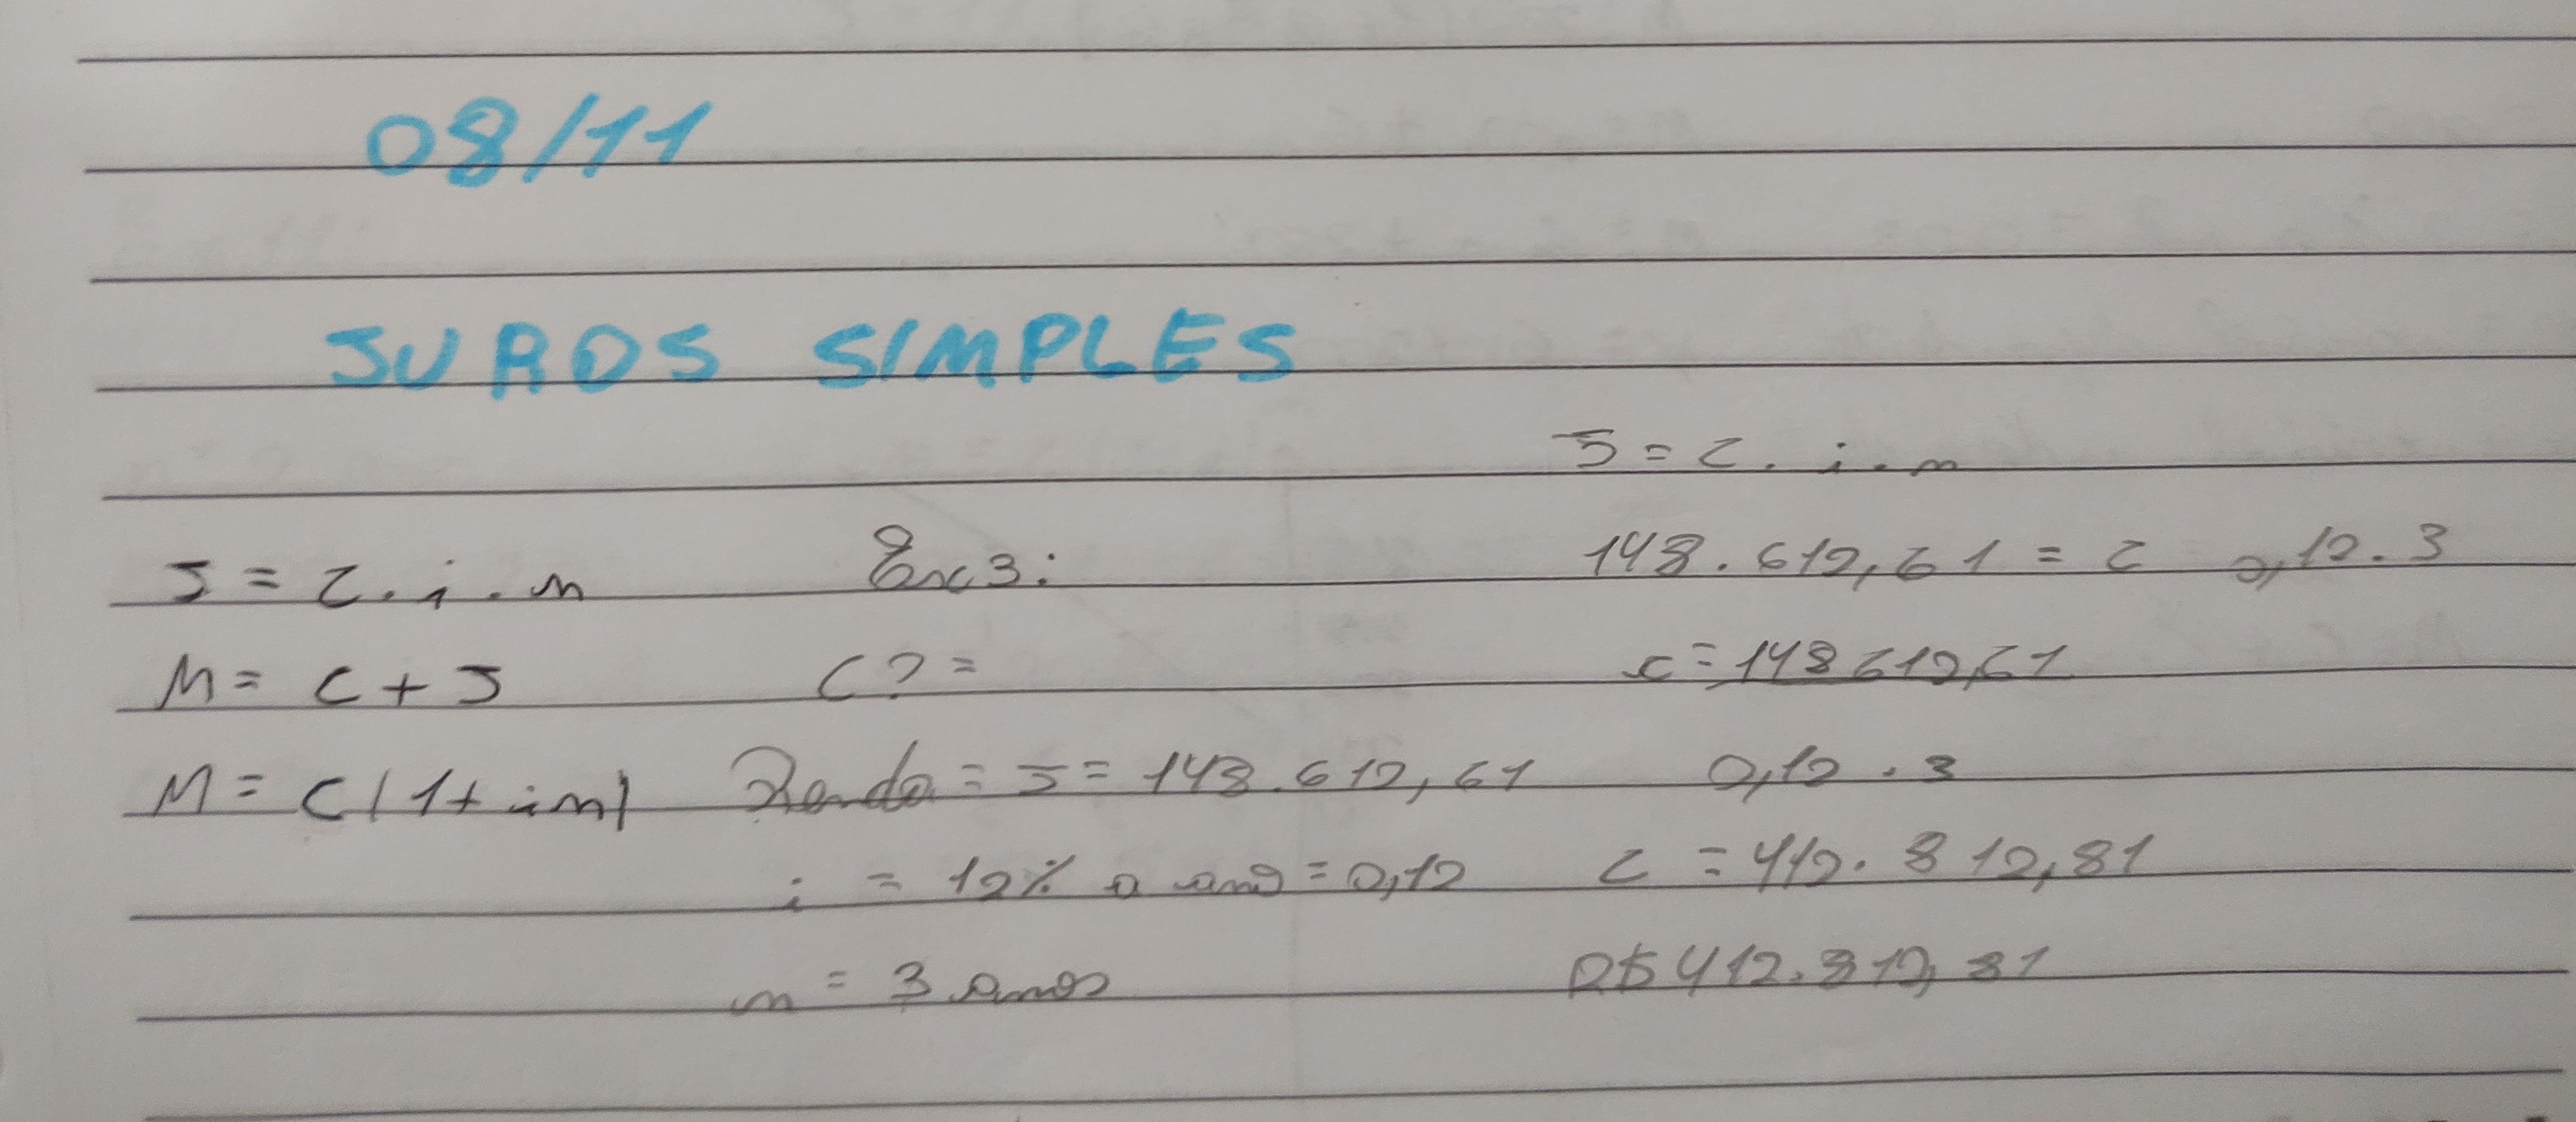 08/11
JUROS SIMPLES
J = C . i . n
M = C + J
M = C (1+ in)
Ex 3:
C? =
Renda = J = 148.612,61
i = 12% a ano = 0,12
n = 3 anos
J = C . i . n
148.612,61 = C 0,12 . 3
C = 148612,61
0,12 . 3
C = 412.812,81
R$ 412.812,81